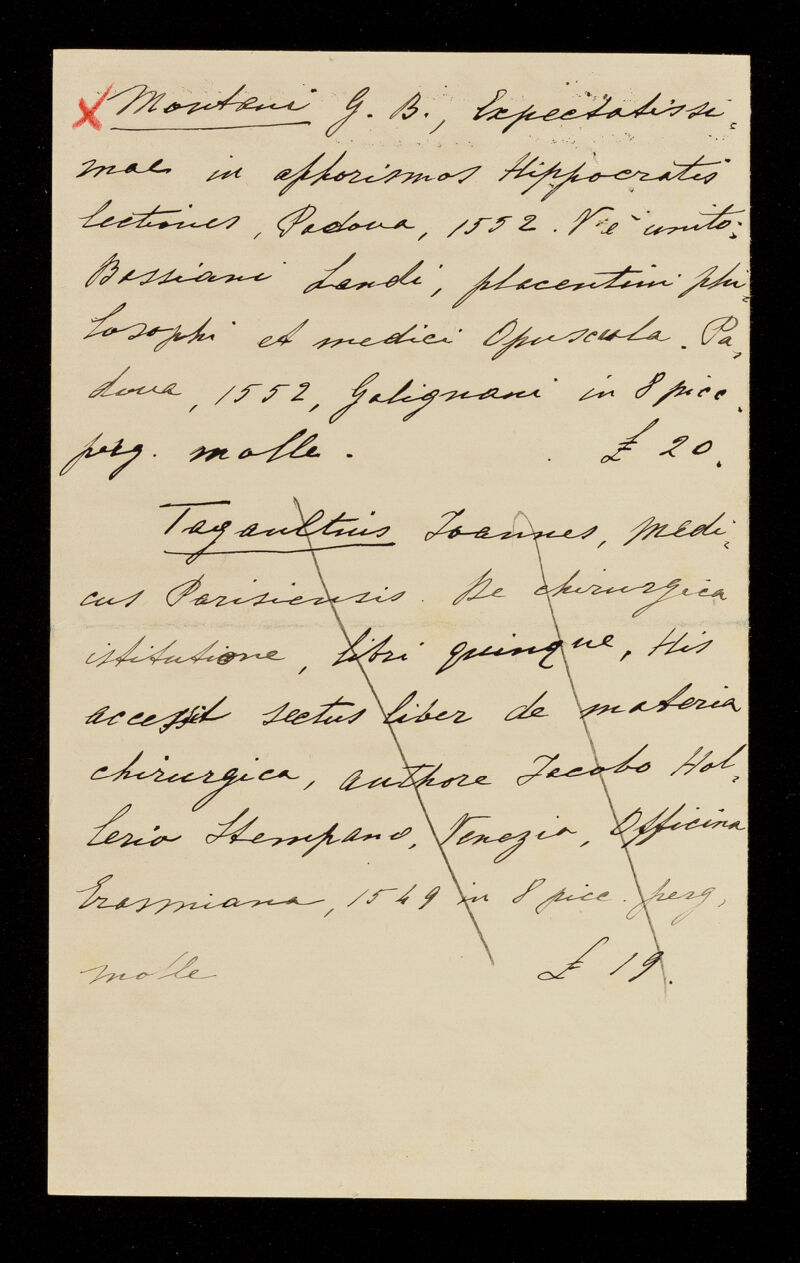 x Montani G. B., Expectatissi-
mae in aphorismos Hippocratis
lectiones, Padova, 1552. V'è unito:
Bassiani Landi, placentini phi-
losophi et medici Opuscula. Pa-
dova, 1552, Galignani in 8 picc.
perg. molle. £ 20.
Tagaultius Joannes, medi-
cus Parisiensis. De chirurgica
istitutione, libri quinque, His
accessit sectus liber de materia
chirurgica, authore Jacobo Hol-
lerio Stempano, Venezia, Officina
Erasmiana, 1549 in 8 picc. perg,
molle £ 19.